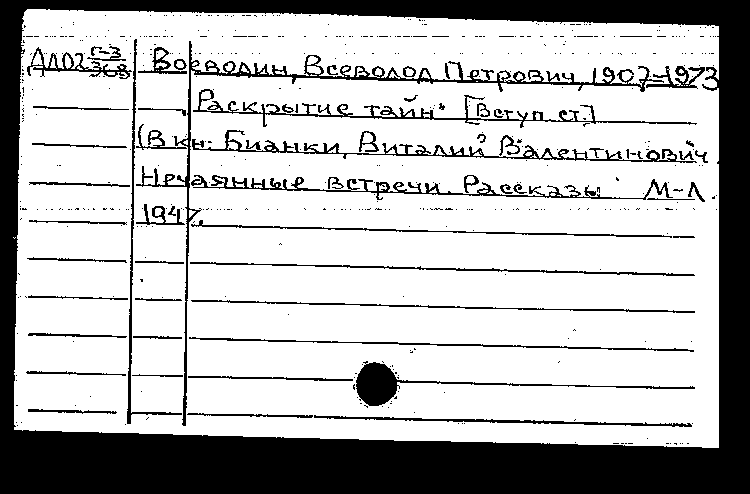 ДЛО2 Г-3/368 Воеводин, Всеволод Петрович, 1907-1973
Раскрытие тайн. [Вступ. ст.]
(В кн.: Бианки, Виталий Валентинович.
Нечаянные встречи. Рассказы. М-Л.
1947.